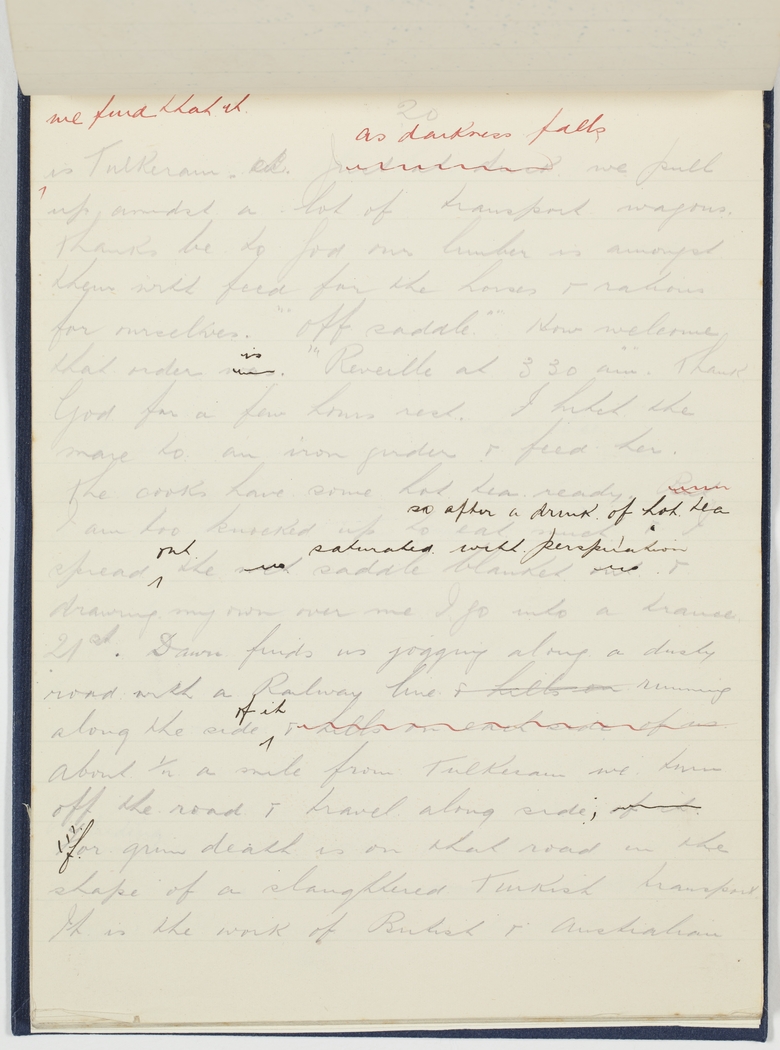 20
we find that it
as darkness falls
is Tulkeram. we pull
up amidst a lot of transport wagons.
Thanks be to God our limber is amongst
them with feed for the horses & rations
for ourselves. "Off saddle." How welcome
is
that order. "Reveille at 3 30 am". Thank
God for a few hours rest. I hitch the
mare to an iron girder & feed her.
The cooks have some hot tea ready.
so after a drink of hot tea
I am too knocked up to eat much I
out saturated with perspiration
spread the saddle blanket &
drawing my own over me I go into a trance.
21st. Dawn finds us jogging along a dusty
road with a Railway line & hills on running
of it
along the side & hills on each side of us.
About ½ a mile from Tulkeram we turn
off the road & travel along side, of it.
for grim death is on that road in the
shape of a slaughtered Turkish transport
It is the work of British & Australian